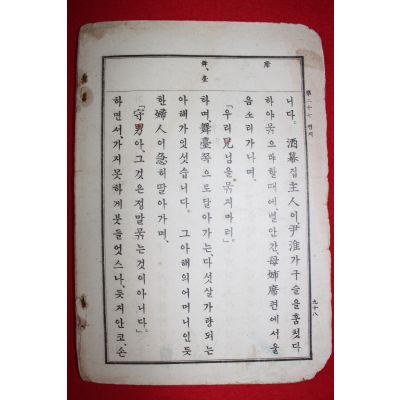 席
舞、臺
第二十七 연극
九十八
니다。 酒幕집主人이、尹淮가구슬을훔첫다
하야、묶으랴할때에、별안간、母姉席편에서울
음소리가나며、
「우리兄님을、묶지마러」
하며、舞臺쪽으로달아가는、다섯살가량되는
아해가잇섯습니다。 그아해의어머니인듯
한婦人이急히딸아가며、
「守男아、그것은정말묶는것이아니다。」
하면서、가지못하게붓들엇스나、듯지안코、손